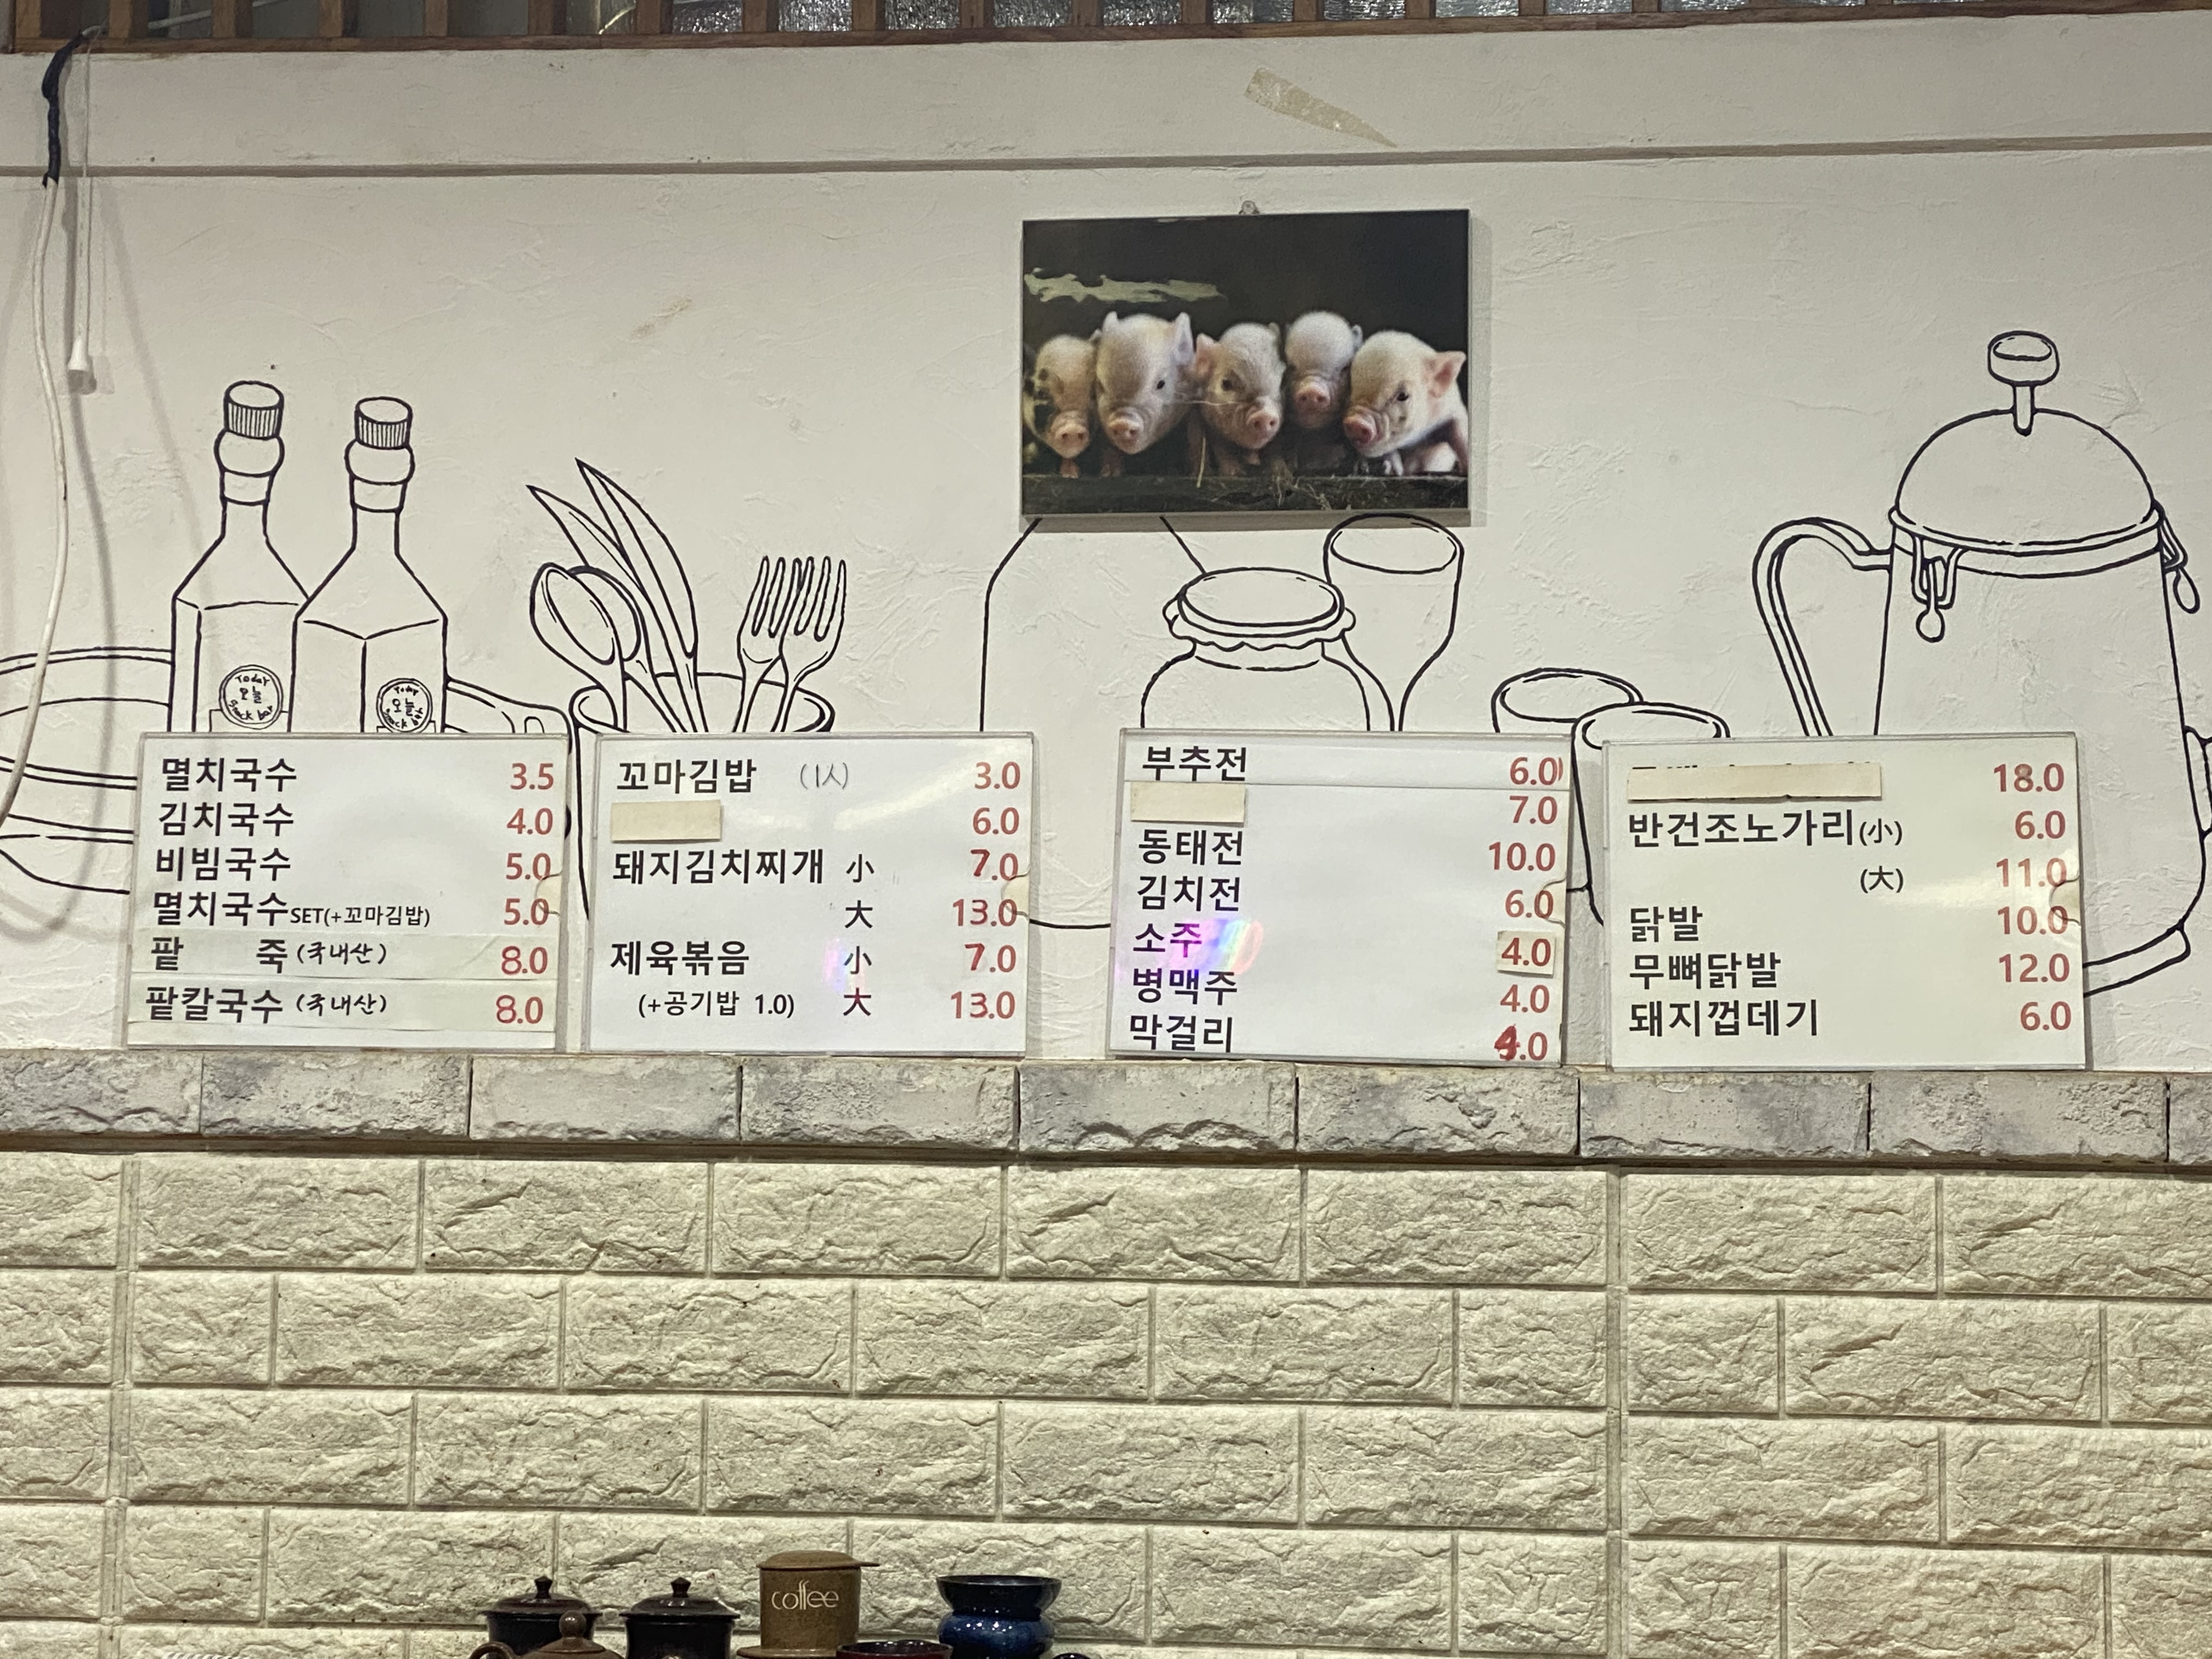 Today
오늘
Snack bar
Today
오늘
Snack bar
멸치국수 3.5
김치국수 4.0
비빔국수 5.0
멸치국수SET(+꼬마김밥) 5.0
팥 죽 (국내산) 8.0
팥칼국수 (국내산) 8.0
꼬마김밥 (1人) 3.0
6.0
돼지김치찌개 小 7.0
大 13.0
제육볶음 小 7.0
(+공기밥 1.0) 大 13.0
부추전 6.0
7.0
동태전 10.0
김치전 6.0
소주 4.0
병맥주 4.0
막걸리 4.0
18.0
반건조노가리(小) 6.0
(大) 11.0
닭발 10.0
무뼈닭발 12.0
돼지껍데기 6.0
coffee